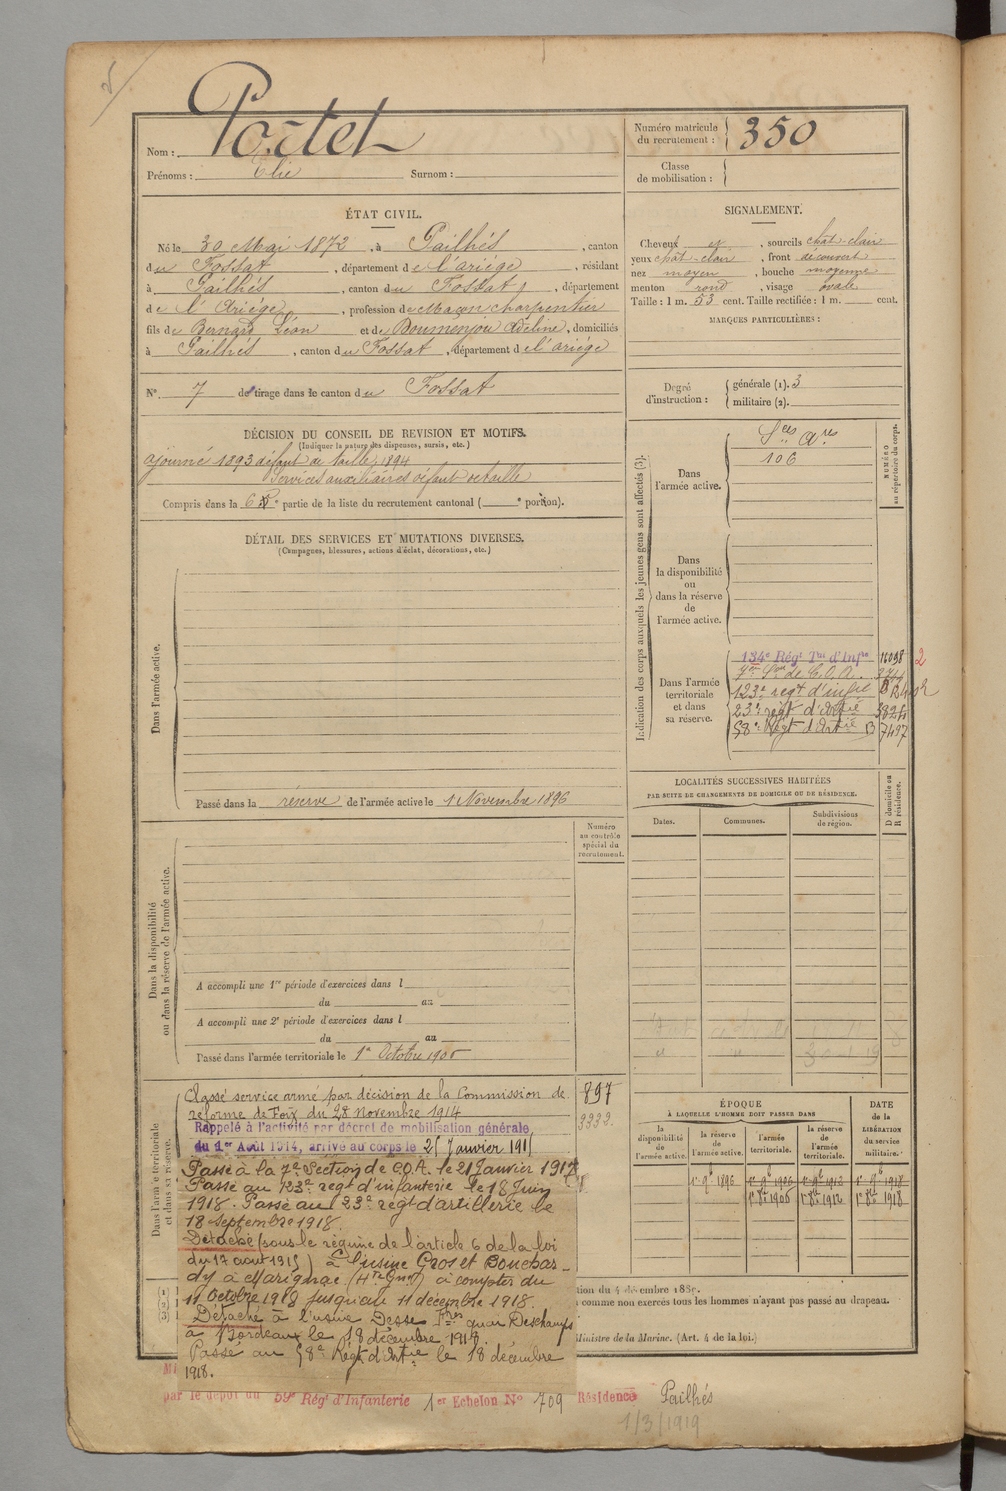 Nom : Portet
Prénoms : Elie Surnom :
Numéro matricule du recrutement : 350
Classe de mobilisation :
ÉTAT CIVIL.
Né le 30 Mai 1872, à Pailhés, canton
du Fossat, département de l'ariége, résidant
à Pailhés, canton du Fossat, département
de l'Ariége, profession de Maçon charpentier
fils de Bernard Léon et de Boumenjou Adeline, domiciliés
à Pailhés, canton du Fossat, département de l'ariége
N° 7 de tirage dans le canton du Fossat
SIGNALEMENT.
Cheveux et, sourcils chat-clair
yeux chat-clair, front découvert
nez moyen, bouche moyenne
menton rond, visage ovale
Taille : 1 m. 53 cent. Taille rectifiée : 1 m. cent.
MARQUES PARTICULIÈRES :
Degré d'instruction : générale (1). 3
militaire (2).
DÉCISION DU CONSEIL DE REVISION ET MOTIFS.
(Indiquer la nature des dispenses, sursis, etc.)
ajourné 1893 défaut de taille, 1894
Services auxiliaires défaut de taille
Compris dans la 6e partie de la liste du recrutement cantonal ( e portion).
DÉTAIL DES SERVICES ET MUTATIONS DIVERSES.
(Campagnes, blessures, actions d'éclat, décorations, etc.)
Dans l'armée active.
Passé dans la réserve de l'armée active le 1 Novembre 1896
Indication des corps auxquels les jeunes gens sont affectés (3).
NUMÉRO au répertoire du corps.
Dans l'armée active.
Sces ares
106
Dans la disponibilité ou dans la réserve de l'armée active.
Dans l'armée territoriale et dans sa réserve.
134e Régt Tal d'Infie 16098 2
7eme Son de C.O.A. 3744
123e regt d'infie
23e regt d'Artie
58e Régt d'Artie B 7497
LOCALITÉS SUCCESSIVES HABITÉES
PAR SUITE DE CHANGEMENTS DE DOMICILE OU DE RÉSIDENCE.
D domicile ou R résidence.
Dates. Communes. Subdivisions de région.
Numéro au contrôle spécial du recrutement.
Dans la disponibilité ou dans la réserve de l'armée active.
A accompli une 1re période d'exercices dans l
du au
A accompli une 2e période d'exercices dans l
du au
Passé dans l'armée territoriale le 1er Octobre 1906
Dans l'armée territoriale et dans sa réserve.
Classé service armé par décision de la Commission de 897
réforme de Foix du 28 novembre 1914 3333
Rappelé à l'activité par décret de mobilisation générale
du 1er Août 1914, arrivé au corps le 25 Janvier 1915
Passé à la 7e Section de C.O.A. le 21 Janvier 1917
Passé au 123e regt d'infanterie le 18 Juin
1918. Passé au 23e regt d'artillerie le
18 septembre 1918.
Détaché (sous le régime de l'article 6 de la loi
du 17 aout 1915) à l'usine Gros et Bouchar-
dy à Marignac (Hte Gne) à compter du
11 Octobre 1918 jusqu'au 11 décembre 1918.
Détaché à l'usine Desse Fres quai Deschamps
à Bordeaux le 18 décembre 1918.
Passé au 58e Régt d'Artie le 18 décembre
1918.
ÉPOQUE
À LAQUELLE L'HOMME DOIT PASSER DANS
DATE de la LIBÉRATION du service militaire.
la disponibilité de l'armée active. la réserve de l'armée active. l'armée territoriale. la réserve de l'armée territoriale.
1er 9b 1896 1er 9b 1906 1er 9b 1912 1er 9b 1918
1er 8bre 1906 1er 8bre 1912 1er 8bre 1918
comme non exercés tous les hommes n'ayant pas passé au drapeau.
Ministre de la Marine. (Art. 4 de la loi.)
par le dépôt du 59e Régt d'Infanterie 1er Echelon N° 709 Résidence Pailhés
1/3/1919